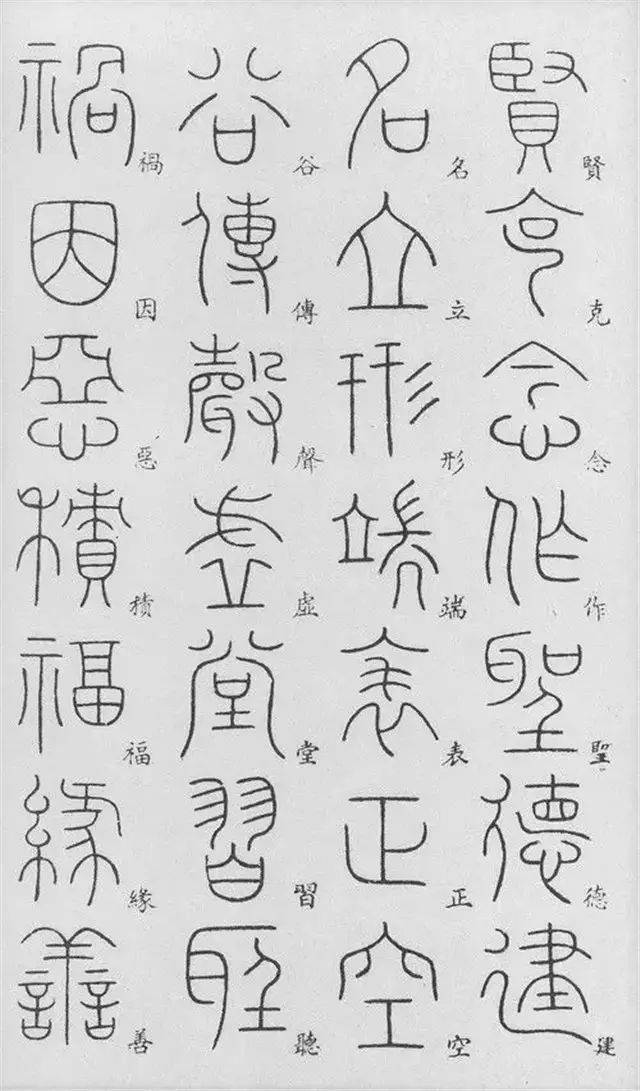 賢克念作聖德建
名立形端表正空
谷傳聲虛堂習聽
禍因惡積福緣善